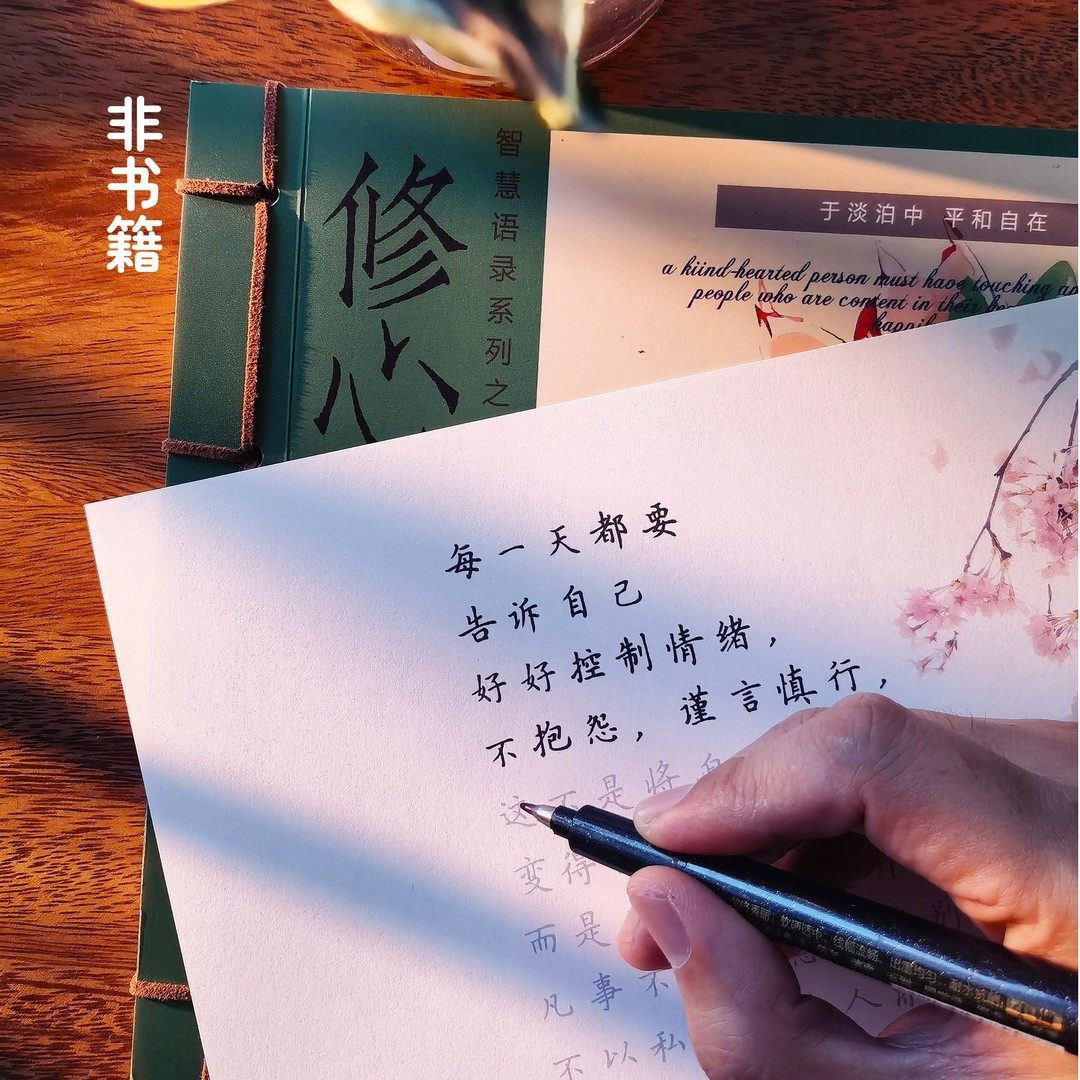 非书籍
修心
智慧语录系列之
于淡泊中 平和自在
a kiind-hearted person must have touching
people who are content in their
每一天都要
告诉自己
好好控制情绪，
不抱怨，谨言慎行，
这不是将自
变得
而是
凡事不
不以私